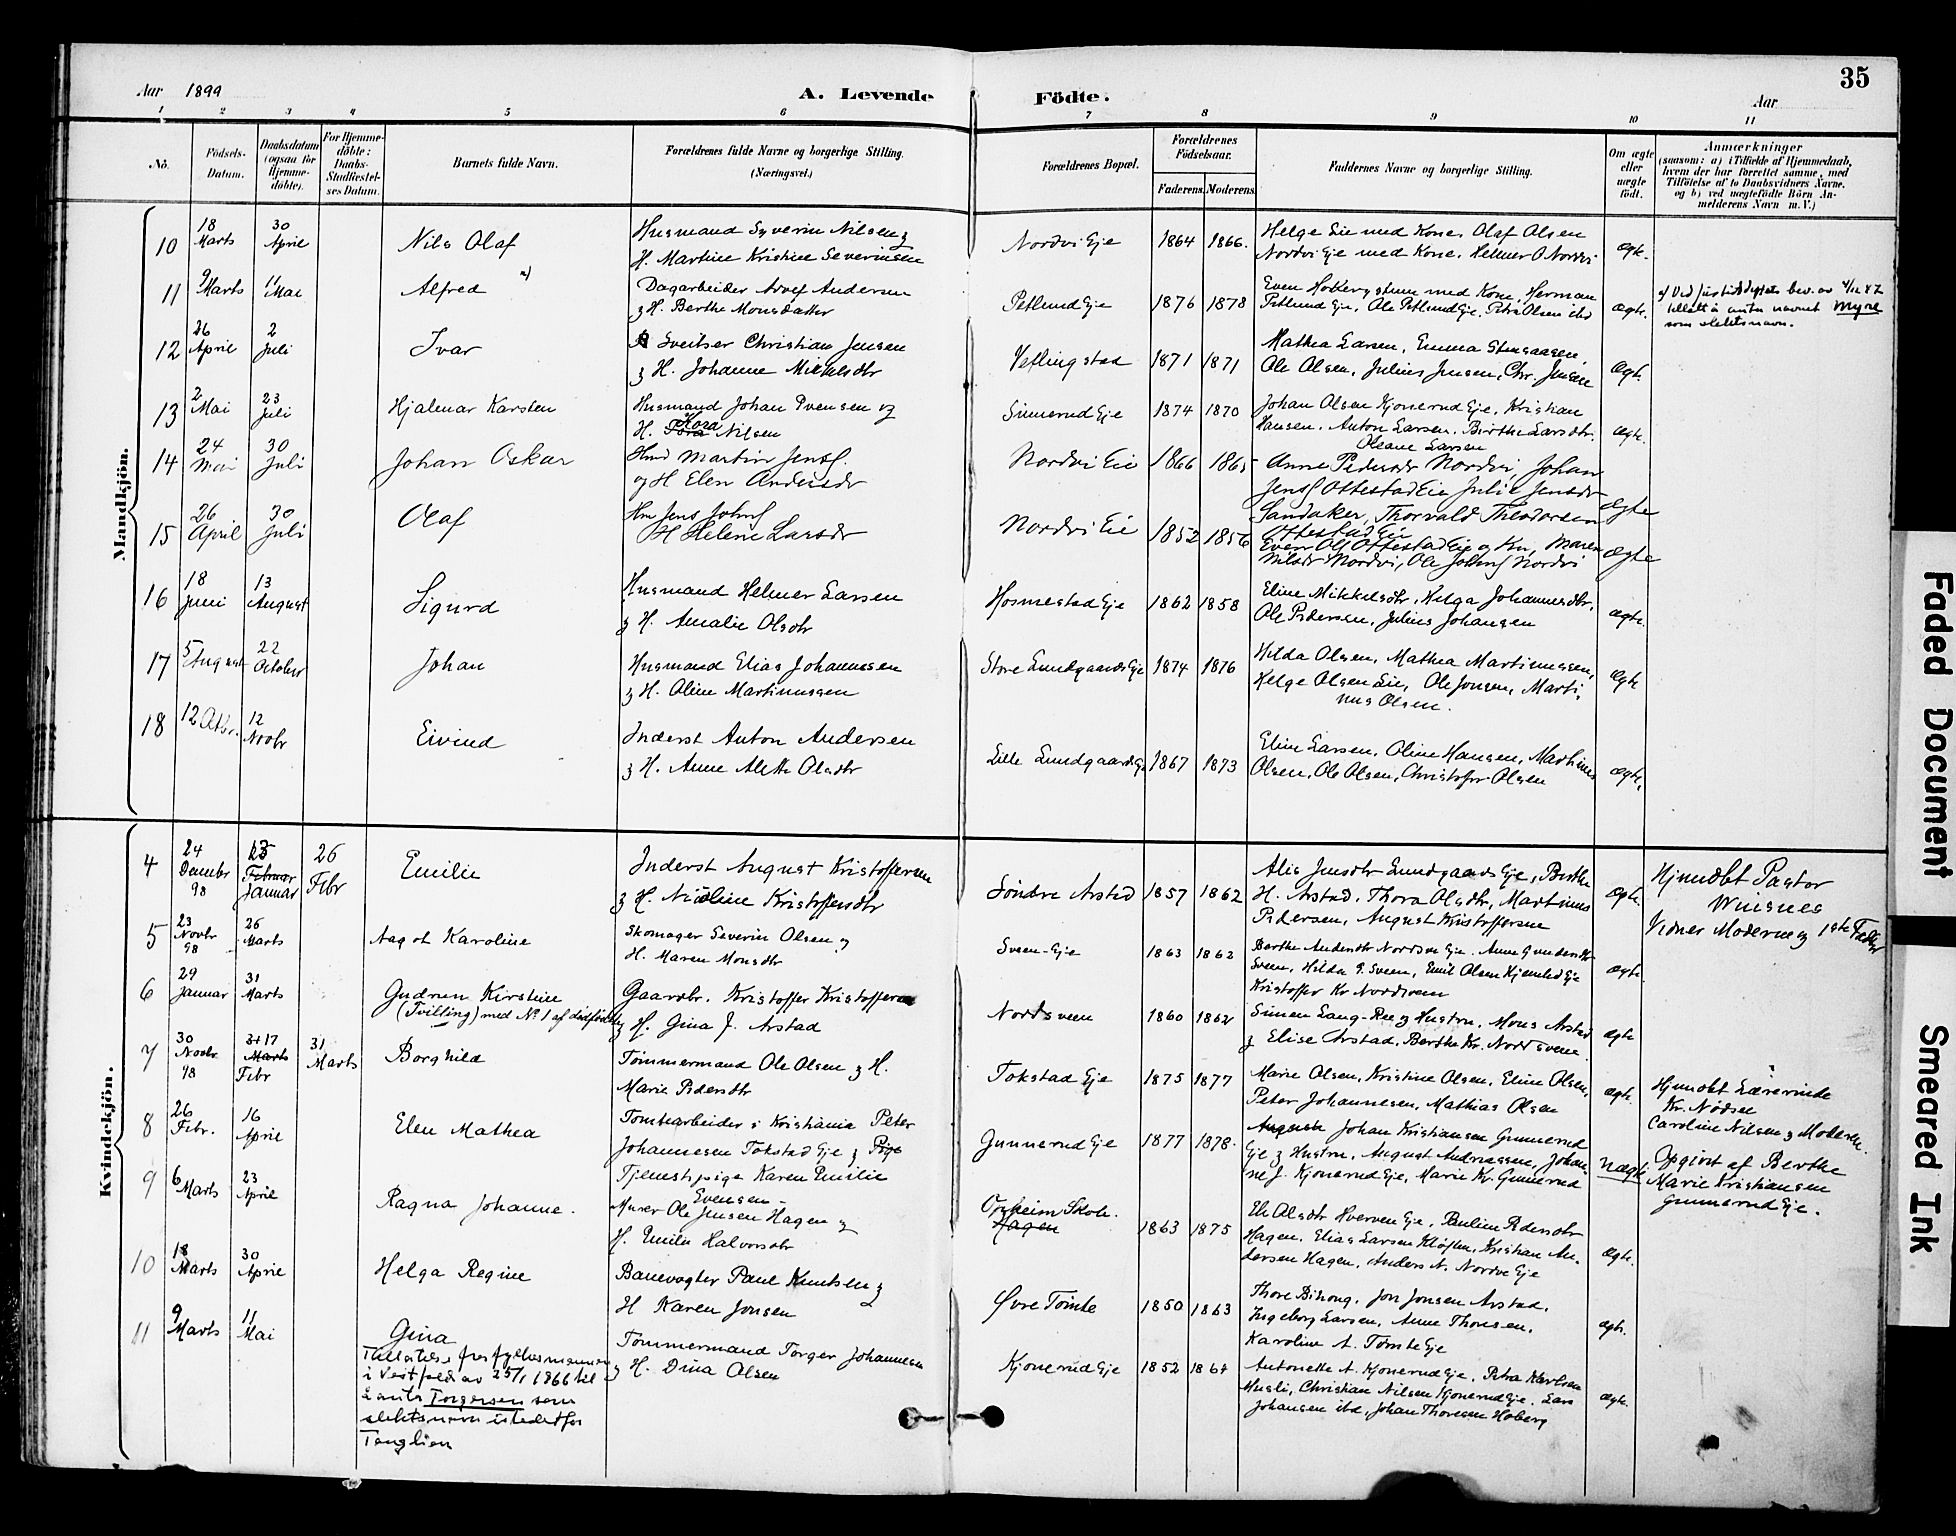 Aar 1899
A. Levende Födte.
35
Aar
1 2 3 4 5 6 7 8 9 10 11
No.
Födsels-Datum.
Daabsdatum (ogsaa för Hjemme-döbte).
For Hjemme-döbte: Daabs-Stadfæstel-ses Datum.
Barnets fulde Navn.
Forældrenes fulde Navne og borgerlige Stilling. (Næringsvei.)
Forældrenes Bopæl.
Forældrenes Födselsaar.
Faderens. Moderens.
Faddernes Navne og borgerlige Stilling.
Om ægte eller uægte födt.
Anmærkninger
(saasom: a) i Tilfælde af Hjemmedaab,
hvem der har forrettet samme, med
Tilföielse af to Daabsvidners Navne.
og b) ved uægtefödte Börn An-
melderens Navn m. V.)
Mandkjön.
10 18 Marts 30 April Nils Olaf Husmand Syverin Nilsen & H. Martine Kristine Severinsen Nordvi Eje 1864 1866. Helge Lie med Kone, Olaf Olsen Nordvi Eje med Kone, Helmer O Nordvi ægte.
11 9 Marts 11 Mai Alfred Dagarbeider Adolf Andersen & H. Berthe Monsdatter Petlund Eje 1876 1878 Even Hobbergstuen med Kone, Herman Petlund Eje, Ole Petlund Eje, Petra Olsen ibd ægte.
som slektsnavn. Myre
12 26 April 2 Juli Ivar Sveitser Christian Jensen & H. Johanne Mikkelsdtr Veflingstad 1871 1871 Mathea Larsen, Emma Stensaasen, Ole Olsen, Julius Jensen, Chr. Jensen ægte.
13 2 Mai 23 Juli Hjalmar Karsten Husmand Johan Svensen og H. Kora Nilsen Sinnerud Eje 1874 1870 Johan Olsen Kjonerud Eje, Kristian Hansen, Anton Larsen, Berthe Larsdtr. Oleane Larsen ægte.
14 24 Mai 30 Juli Johan Oskar Hmd Martin Jens. og H Elen Andersdr Nordvi Eie 1866 1865 Anne Pedersdr Nordvi, Johan Jens Ottestad Eie Julie Jensdr Sandaker, Thorvald Theodorsen Ottestad Eie ægte
15 26 April 30 Juli Olaf Hm Jens Johns H Helene Larsdr Nordvi Eie 1852 1856 Even Ols Ottestad Eie og Kn, Maren Nilsdr Nordvi, Ole Johns Nordvi ægte
16 18 Juni 13 August Sigurd Husmand Helmer Larsen & H. Amalie Olsdtr Hosmestad Eje 1862 1858 Eline Mikkelsdtr, Helga Johannesdtr, Ole Pedersen, Julius Johansen ægte.
17 5 August 22 October Johan Husmand Elias Johannesen & H. Oline Martinussen Store Lundgaards Eje 1874 1876 Hilda Olsen, Mathea Martinussen, Helge Olsen Lie, Ole Jonsen, Marti- nus Olsen. ægte
18 12 Okbr. 12 Novbr Eivind Inderst Anton Andersen & H. Anne Alette Olsdtr Lille Lundgaards Eje 1867 1873 Eline Larsen, Oline Hansen, Martinus Olsen, Ole Olsen, Christoffer Olsen ægte.
Kvindekjön.
4 24 Decembr 98 Februar Januar 26 Febr Emilie Inderst August Kristoffersen & H. Nicoline Kristoffersdtr Söndre Arstad 1857 1862 Alis Jensdtr Lundgaards Eje, Berthe H. Arstad, Thora Olsdtr, Martinus Pedersen, August Kristoffersen ægte. Hjemdbt Pastor Vidner Moderne og
5 23 Novbr 98 26 Marts Aagot Karoline Skomager Severin Olsen & H. Maren Monsdtr Sveen-Eje 1863 1862 Berthe Andersdtr Nordsv Eje, Anne Gundersdtr Sveen, Hilda G. Sveen, Emil Olsen Kjemstad Eje Kristoffer Kr Nordsveen ægte.
6 29 Januar 31 Marts Gudrun Kirstine (Tvilling) med No 1 af dødfødte Gaardbr. Kristoffer Kristoffersen & H. Gina J. Arstad Nordsveen 1860 1862 Simen Lang-Ree & Hustru, Mons Arstad & Elise Arstad, Berthe Kr. Nordsveen ægte
7 30 Novbr 98 17 Marts Febr 31 Marts Borghild Tømmermand Ole Olsen & H. Marie Pedersdtr Tokstad Eje 1875 1877 Marie Olsen, Kristine Olsen, Eline Olsen, Peter Johannesen, Mathias Olsen ægte. Hjemdbt Lærerinde Kr. Nødsee Caroline Nilsen & Moderen.
8 26 Febr. 16 April Elen Mathea Tomtearbeider i Kristiania Peter Johannesen Tokstad Eje & Pige Tjenestepige Karen Emilie Evensen Gunnerud Eje 1877 1878. August Johan Kristiansen Gunnerud Eje & Hustru, August Andreassen, Johan- ne J. Kjonerud Eje, Marie Kr. Gunnerud uægte Opgivet af Berthe Marie Kristiansen Gunnerud Eje.
9 6 Marts 23 April Ragna Johanne. Murer Ole Jensen Hagen & H. Emilie Halvorsdtr Opheim Skole. Hagen 1863 1875 Eli Olsdtr Hverven Eje, Pauline Pedersdtr Hagen, Elias Larsen Kløften, Kristian An- dersen Hagen, Anders N. Nordvi Eje ægte.
10 18 Marts 30 April Helga Regine Banevogter Paul Knutsen & H Karen Jonsen Øvre Tomte 1850 1863 Thore Bihong, Jon Jonsen Arstad, Ingeborg Larsen, Anne Thoresen, Karoline A. Tomte Eje ægte.
11 9 Marts 11 Mai Gina Tømmermand Torger Johannesen & H. Dina Olsen Kjonerud Eje 1852 1864 Antonette A. Kjonerud Eje, Petra Karlsen Musli, Christian Nilsen Kjonerud Eje, Lars Johansen ibd, Johan Thoresen Hoberg ægte.
Tillatelse fra fylkesmannen
i Vestfold av 25/1 1966 til
å anta Torgersen som
slektsnavn istedetfor
Tanglien
Faded Document
Smeared Ink